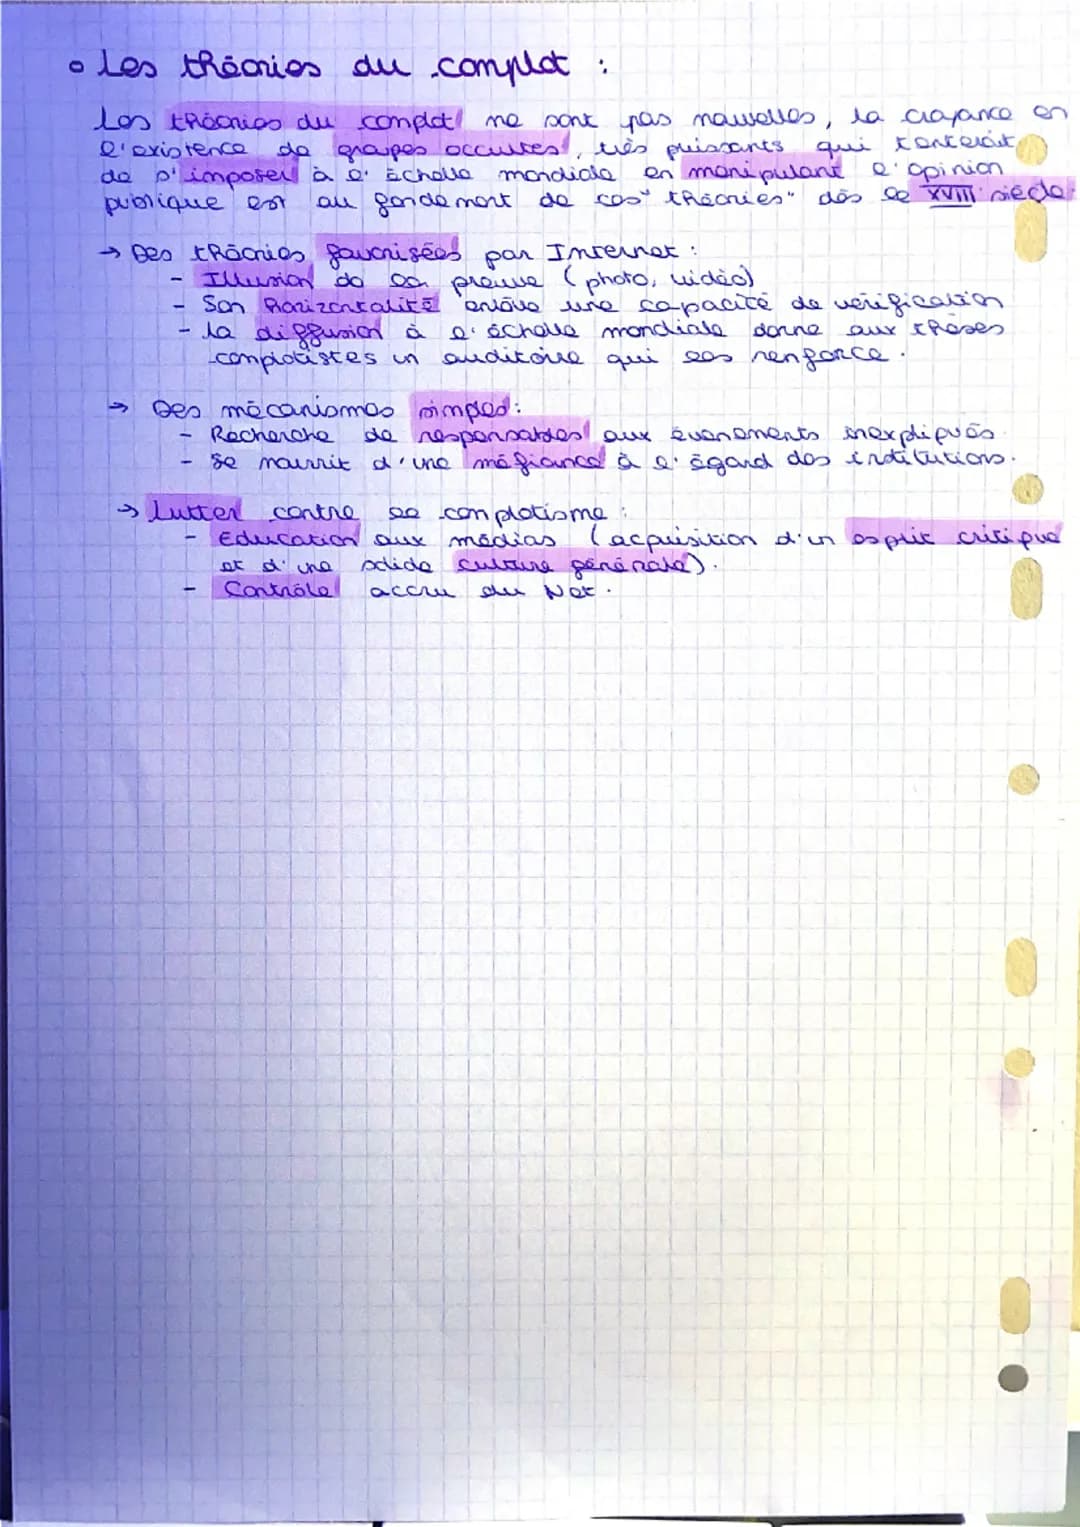 • Les théories du complot :
Les théories du complot ne sont pas nouvelles, la croyance en
l'existence de groupes occultes, très puissants qui tenterait
de s'imposer à l'échelle mondiale en manipulant l'opinion
publique est au fondement de ces "théories" dès le XVIIIe siècle.
→ Des théories favorisées par Internet :
- Illusion de la preuve (photo, vidéo)
- Son horizontalité enlève une capacité de vérification
- La diffusion à l'échelle mondiale donne aux thèses
complotistes un auditoire qui les renforce.
→ Des mécanismes simples :
- Recherche de responsables aux évenements inexpliqués.
- Se nourrit d'une méfiance à l'égard des institutions.
→ Lutter contre le complotisme :
- Education aux médias (acquisition d'un esprit critique
et d'une solide culture générale).
- Contrôle accru du Net.